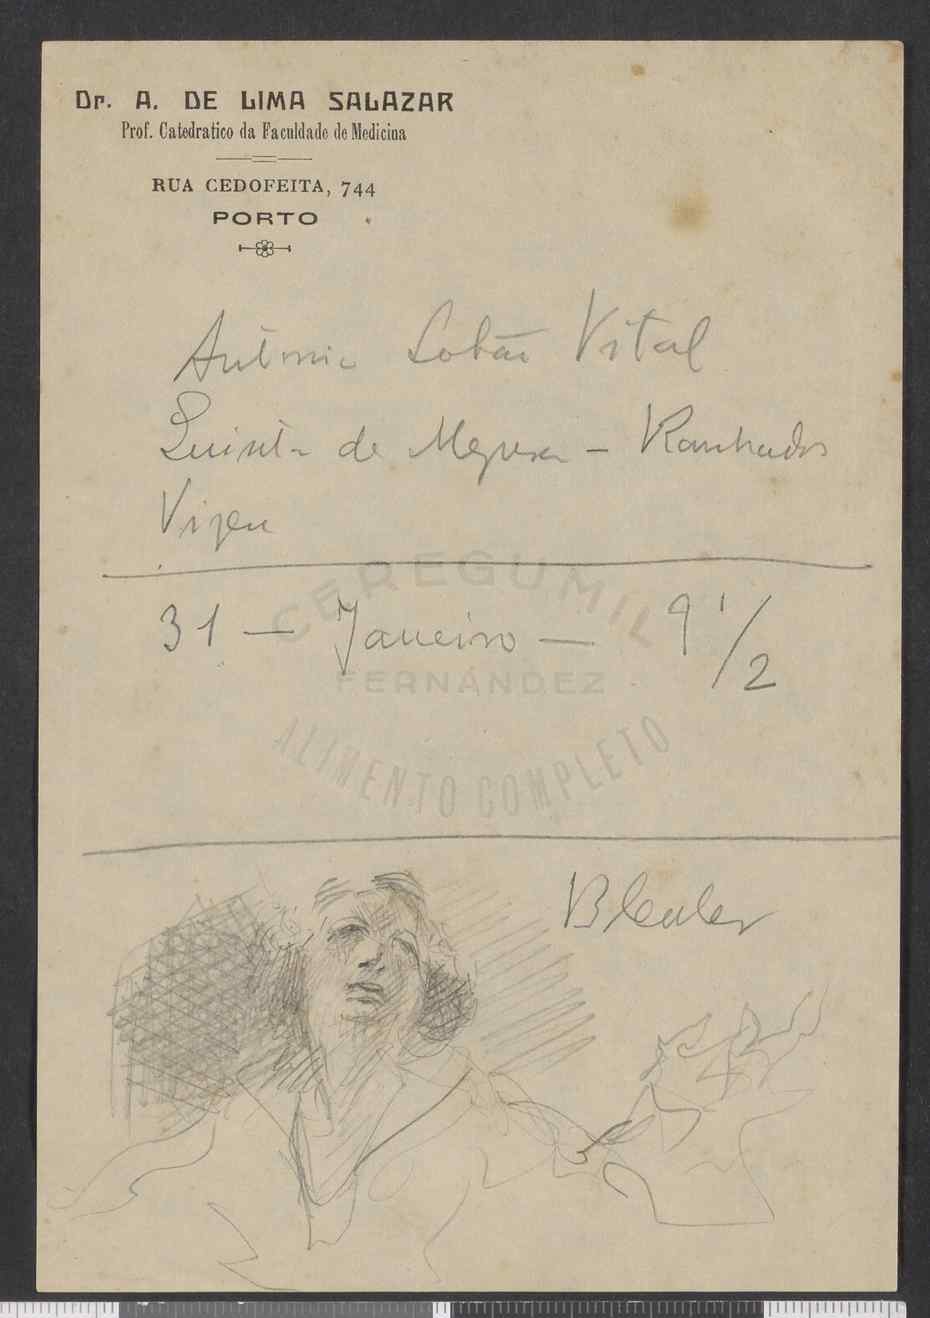 Dr. A. DE LIMA SALAZAR
Prof. Catedratico da Faculdade de Medicina
RUA CEDOFEITA, 744
PORTO
António Lobão Vital
Quinta de - Ranhados
Vizeu
31 — Janeiro — 9 1/2
CEREGUMIL
FERNÁNDEZ
ALIMENTO COMPLETO
Bleuler